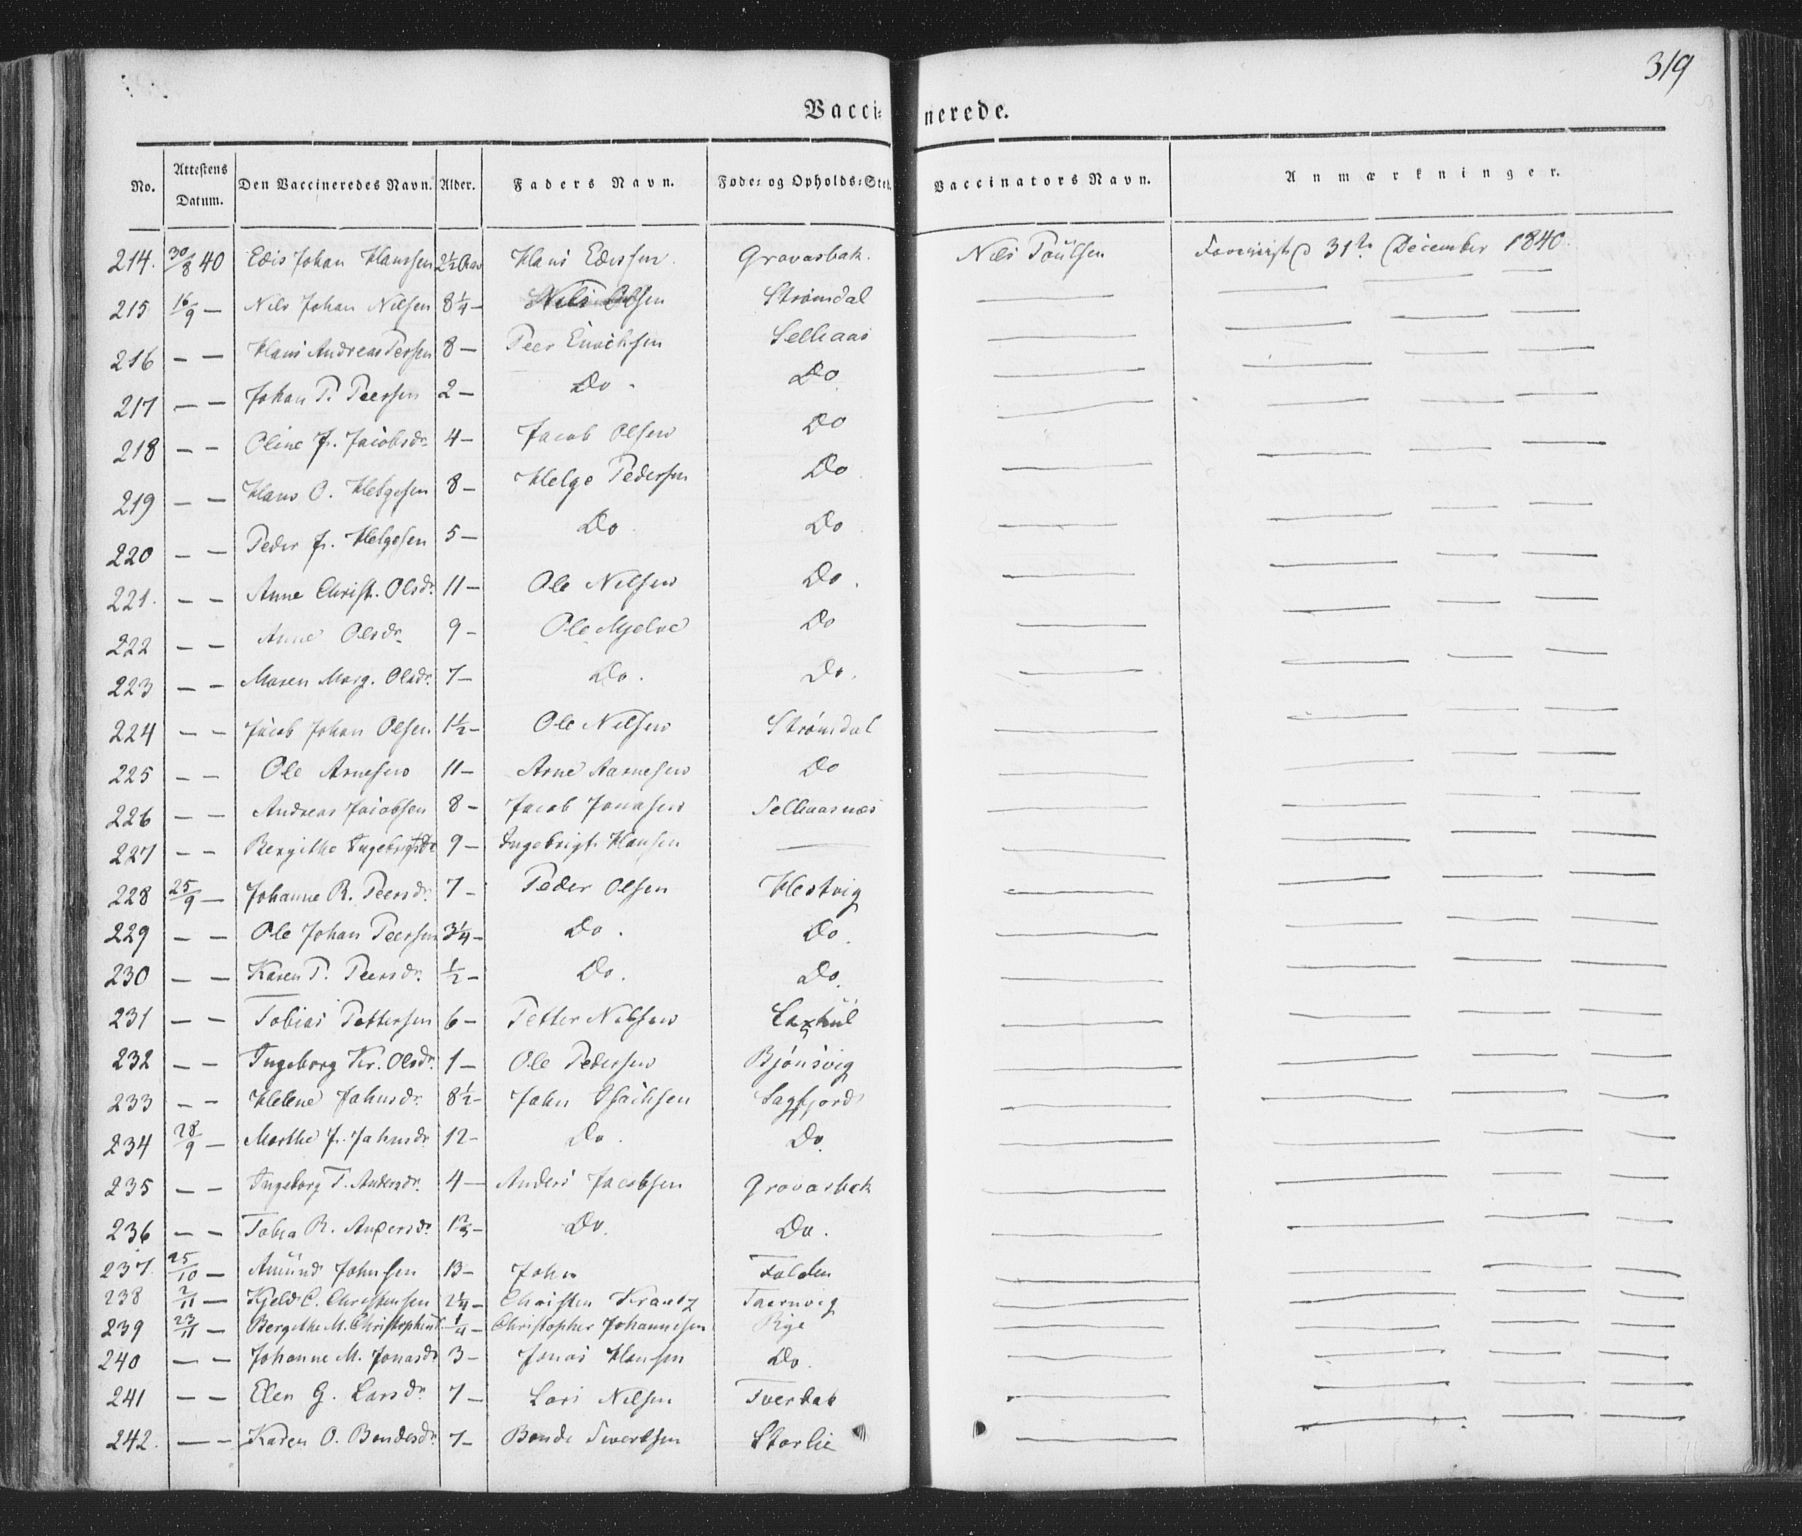 319
Vaccinerede.
No. Attestens Datum. Den Vaccineredes Navn. Alder. Faders Navn. Føde- og Opholds-Sted. Vaccinators Navn. Anmærkninger.
214. 30/8 40 Edis Johan Hanssen 2½ Hans Edissen. Gravasbak. Nils Poulsen 31te December 1840.
215 16/9 — Nils Johan Nilsen 8¼ — Nils Olsen Strømdal — — — —
216 — — Hans Andreas Persen 8 — Peer Selhaas — — — —
217 — — Johan P. Peersen 2 — Do. Do — — — —
218 — — Oline J. Jacobsdr. 4 — Jacob Olsen Do — — — —
219 — — Hans O. Helgesen 8 — Helge Pedersen Do — — — —
220 — — Peder J. Helgesen 5 — Do Do — — — —
221. — — Anne Christ. Olsdr. 11 — Ole Nilsen Do. — — — —
222 — — Anne Olsdr. 9 — Ole Mjelve Do — — — —
223 — — Maren Marg. Olsdr. 7 — Do. Do. — — — —
224 — — Jacob Johan Olsen 1½ — Ole Nilsen Strømdal — — — —
225 — — Ole Arnesen 11 — Arne Aarnesen Do — — — —
226 — — Andreas Jacobsen 8 — Jacob Jonasen Selhaasnæs — — — —
227 — — Bergithe Ingebrigtsdr 9 — Ingebrigt Hansen — — — — —
228 25/9 — Johanne R. Peersdr. 7 — Peder Olsen Hestvig — — — —
229 — — Ole Johan Peersen 3¼ — Do. Do. — — — —
230 — — Karen P. Peersdr. ½ — Do. Do. — — — —
231 — — Tobias Pettersen 6 — Petter Nilsen — — — —
232 — — Ingeborg Kr. Olsdr. 1 — Ole Pedersen Bjønsvig — — — —
233 — — Helene Johnsdr. 8½ — John Isachsen Sagfjord — — — —
234 28/9 — Marthe J. Johnsdr 12 — Do. Do. — — — —
235 — — Ingeborg T. Andersdr. 4 — Anders Jacobsen Gravasbak — — — —
236 — — Tobia R. Andersdr. — Do. Do. — — — —
237. 25/10 — Amund Johnsen 13 — John Folden — — — —
238 2/11 — Kjeld C. Christensen 2¼ — Christen Krantz Taernvig — — — —
239 23/11 — Bergithe M. ¼ — Christopher Johannesen Rye — — — —
240 — — Johanne M. Jonasdr 3 — Jonas Hansen Do. — — — —
241 — — Elen G. Larsdr. 7 — Lars Nilsen Tverbak — — — —
242. — — Karen O. Bendesdr. 7 — Bende Sivertsen Storlie — — — —